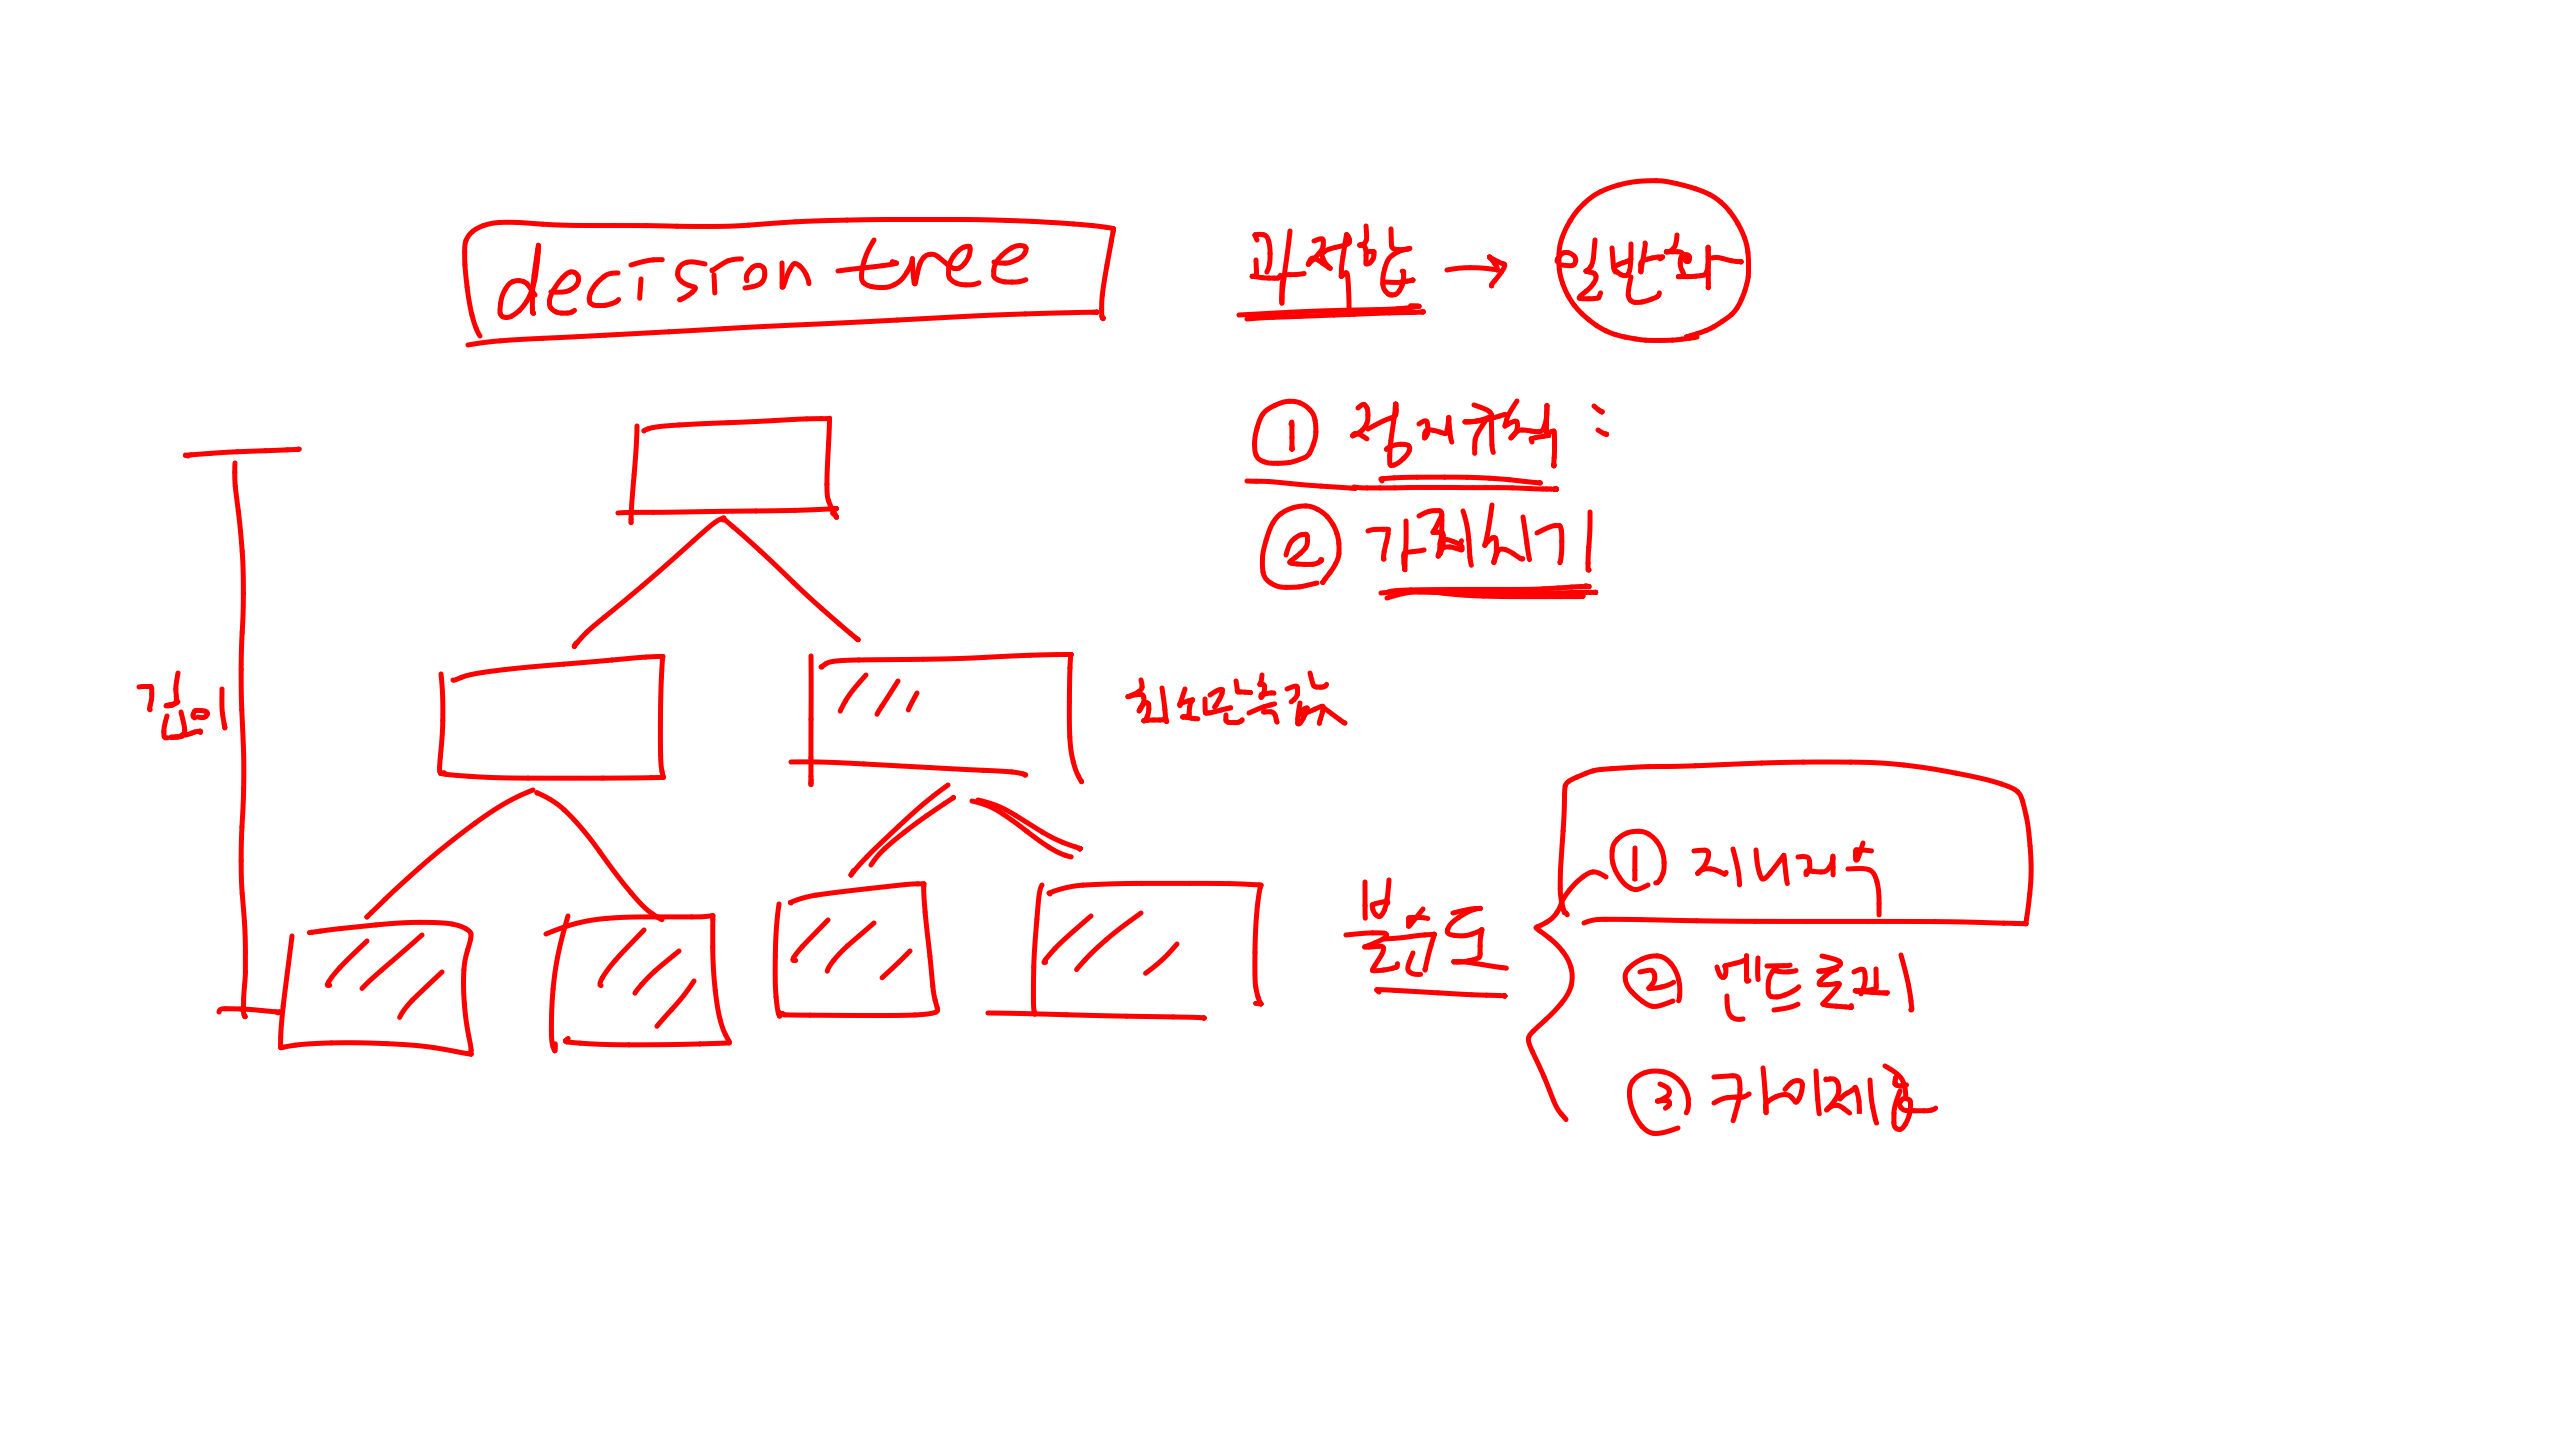 decision tree
과적합 → 일반화
① 정지규칙 :
② 가지치기
깊이
최소관측값
불순도
① 지니지수
② 엔트로피
③ 카이제곱